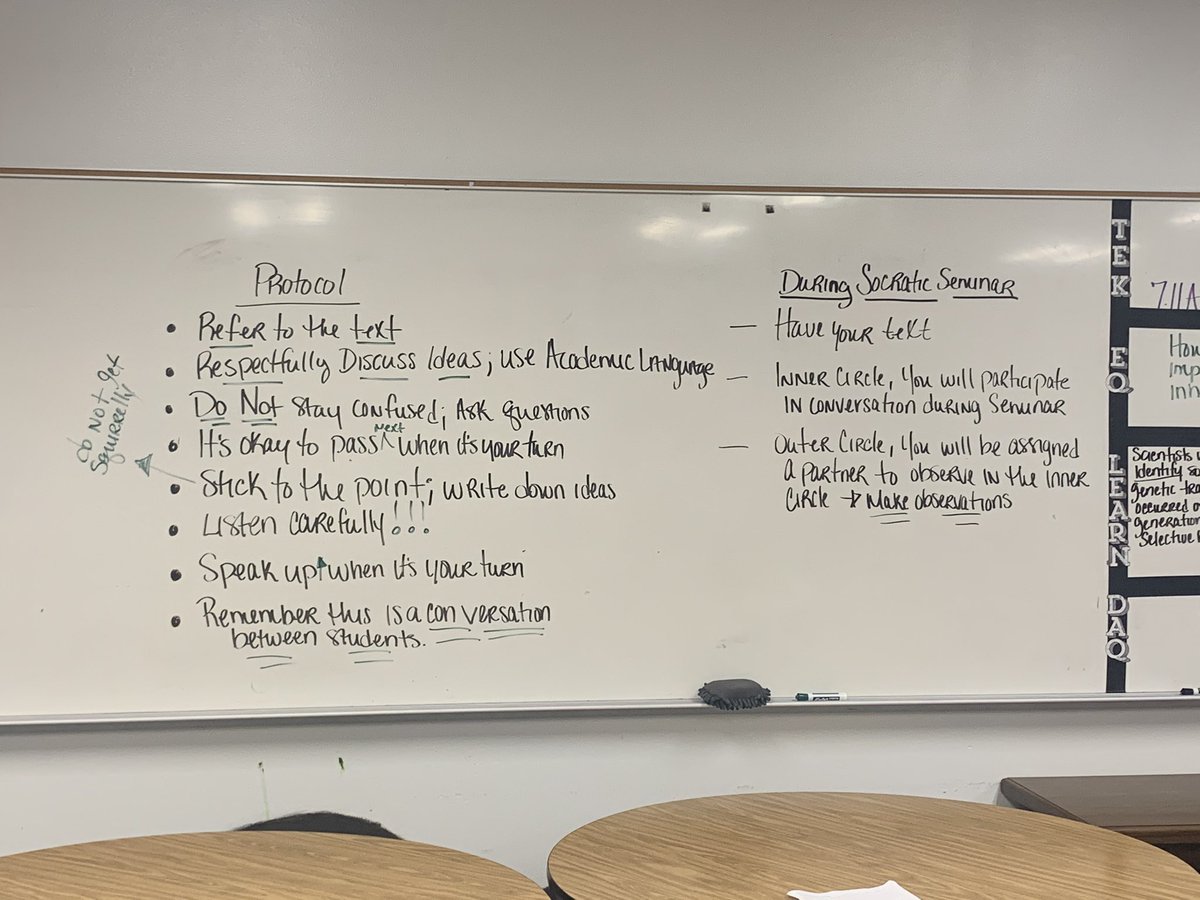 Protocol
• Refer to the text
• Respectfully Discuss Ideas; use Academic Language
• Do Not stay confused; Ask questions
• It's okay to pass ^ next when it's your turn
do Not get
squirrelly
• Stick to the point; write down ideas
• Listen carefully!!!
• Speak up when it's your turn
• Remember this is a conversation
between students.
During Socratic Seminar
— Have your text
— Inner Circle, you will participate
in conversation during Seminar
— Outer Circle, you will be assigned
a partner to observe in the inner
circle → Make observations
TEK
7.11A
EQ
How
imp
inh
LEARN
Scientists
Identify
genetic
occurred
generation
Selective
DAQ